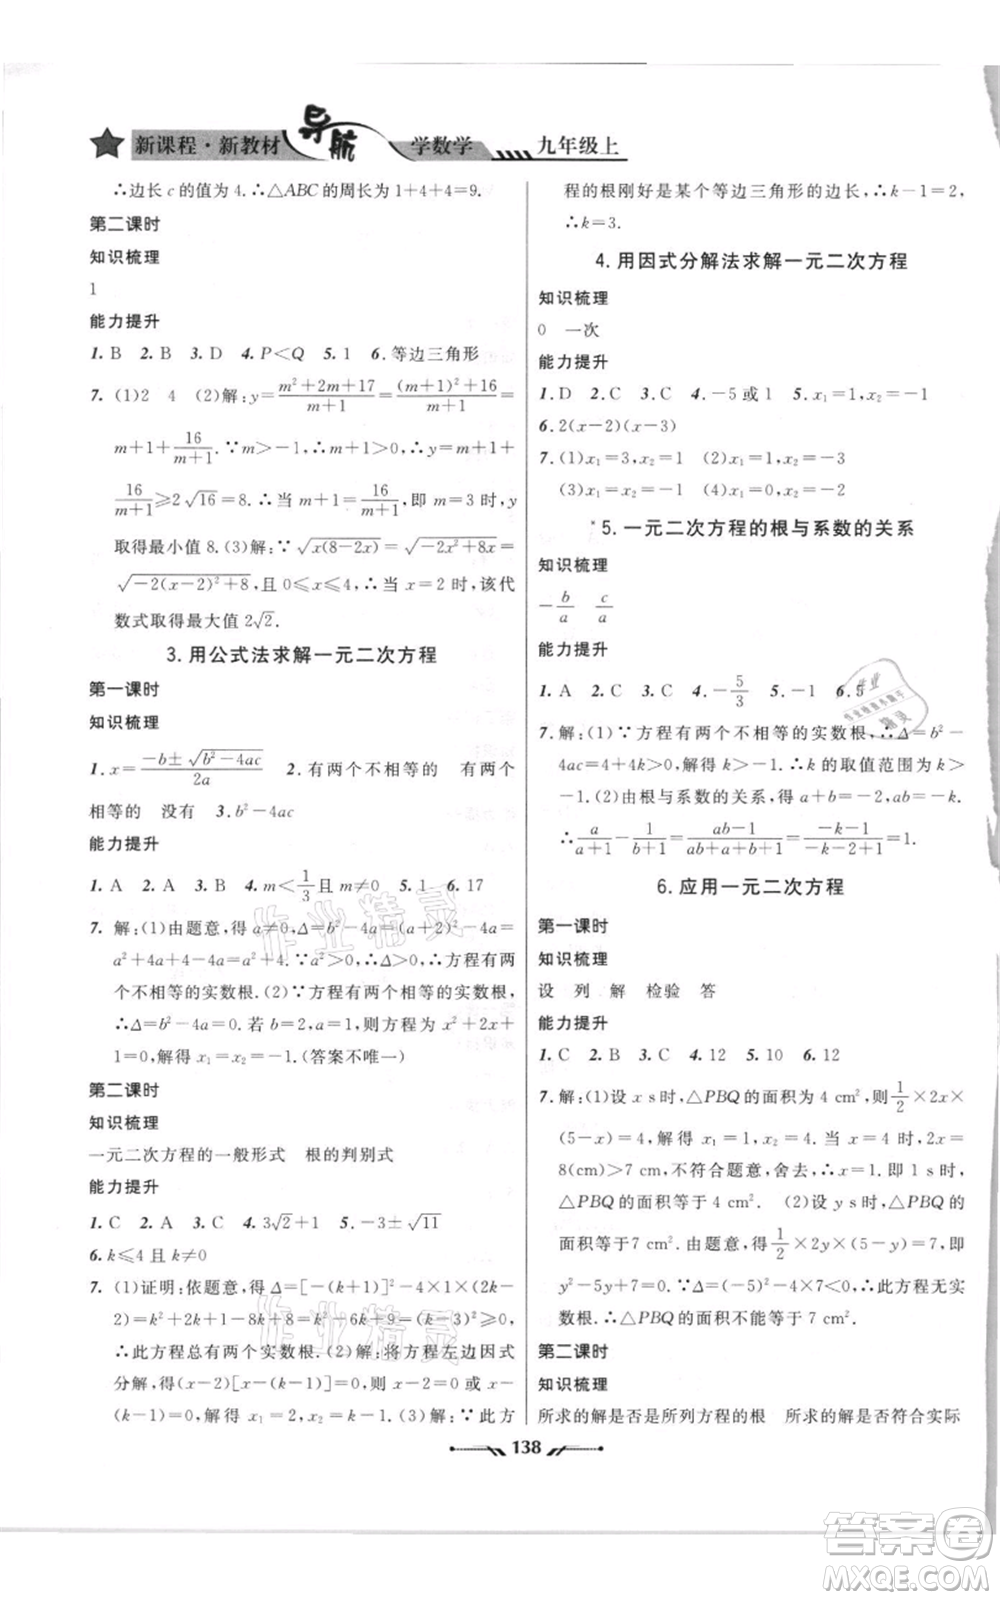 新课程·新教材 导航 学数学 九年级上
∴边长 c 的值为 4.∴△ABC 的周长为 1+4+4=9.
第二课时
知识梳理
1
能力提升
1. B 2. B 3. D 4. P<Q 5. 1 6. 等边三角形
7. (1)2 4 (2)解:y=\frac{m²+2m+17}{m+1}=\frac{(m+1)²+16}{m+1}=
m+1+\frac{16}{m+1}.∵m>-1,∴m+1>0,∴y=m+1+
\frac{16}{m+1}≥2\sqrt{16}=8.∴当 m+1=\frac{16}{m+1},即 m=3 时,y
取得最小值 8.(3)解:∵\sqrt{x(8-2x)}=\sqrt{-2x²+8x}=
\sqrt{-2(x-2)²+8},且 0≤x≤4,∴当 x=2 时,该代
数式取得最大值 2\sqrt{2}.
3. 用公式法求解一元二次方程
第一课时
知识梳理
1. x=\frac{-b±\sqrt{b²-4ac}}{2a} 2. 有两个不相等的 有两个
相等的 没有 3. b²-4ac
能力提升
1. A 2. A 3. B 4. m<\frac{1}{3}且 m≠0 5. 1 6. 17
7. 解:(1)由题意,得 a≠0,Δ=b²-4a=(a+2)²-4a=
a²+4a+4-4a=a²+4.∵a²>0,∴Δ>0,∴方程有两
个不相等的实数根.(2)∵方程有两个相等的实数根,
∴Δ=b²-4a=0.若 b=2,a=1,则方程为 x²+2x+
1=0,解得 x₁=x₂=-1.(答案不唯一)
第二课时
知识梳理
一元二次方程的一般形式 根的判别式
能力提升
1. C 2. A 3. C 4. 3\sqrt{2}+1 5. -3±\sqrt{11}
6. k≤4 且 k≠0
7. (1)证明:依题意,得 Δ=[-(k+1)]²-4×1×(2k-
2)=k²+2k+1-8k+8=k²-6k+9=(k-3)²≥0,
∴此方程总有两个实数根.(2)解:将方程左边因式
分解,得(x-2)[x-(k-1)]=0,则 x-2=0 或 x-
(k-1)=0,解得 x₁=2,x₂=k-1.(3)解:∵此方
程的根刚好是某个等边三角形的边长,∴k-1=2,
∴k=3.
4. 用因式分解法求解一元二次方程
知识梳理
0 一次
能力提升
1. D 2. C 3. C 4. -5 或 1 5. x₁=1,x₂=-1
6. 2(x-2)(x-3)
7. (1)x₁=3,x₂=1 (2)x₁=2,x₂=-3
(3)x₁=x₂=1 (4)x₁=-2,x₂=4
*5. 一元二次方程的根与系数的关系
知识梳理
-\frac{b}{a} \frac{c}{a}
能力提升
1. A 2. C 3. A 4. -\frac{5}{3} 5. -1 6. 5
7. 解:(1)∵方程有两个不相等的实数根,∴Δ=b²-
4ac=4+4k>0,解得 k>-1.∴k 的取值范围为 k>
-1.(2)由根与系数的关系,得 a+b=-2,ab=-k.
∴\frac{a}{a+1}-\frac{1}{b+1}=\frac{ab-1}{ab+a+b+1}=\frac{-k-1}{-k-2+1}=1.
6. 应用一元二次方程
第一课时
知识梳理
设 列 解 检验 答
能力提升
1. C 2. B 3. C 4. 12 5. 10 6. 12
7. 解:(1)设 x s时,△PBQ 的面积为 4 cm²,则\frac{1}{2}×2x×
(5-x)=4,解得 x₁=1,x₂=4.当 x=4 时,2x=
8(cm)>7 cm,不符合题意,舍去,∴x=1.即 1 s时,
△PBQ 的面积等于 4 cm². (2)设 y s时,△PBQ 的
面积等于 7 cm².由题意,得\frac{1}{2}×2y×(5-y)=7,即
y²-5y+7=0.∵Δ=(-5)²-4×7<0,此方程无实
数根.∴△PBQ 的面积不能等于 7 cm².
第二课时
知识梳理
所求的解是否是所列方程的根 所求的解是否符合实际
138
作业精灵
作业精灵
答案圈
MXQE.COM